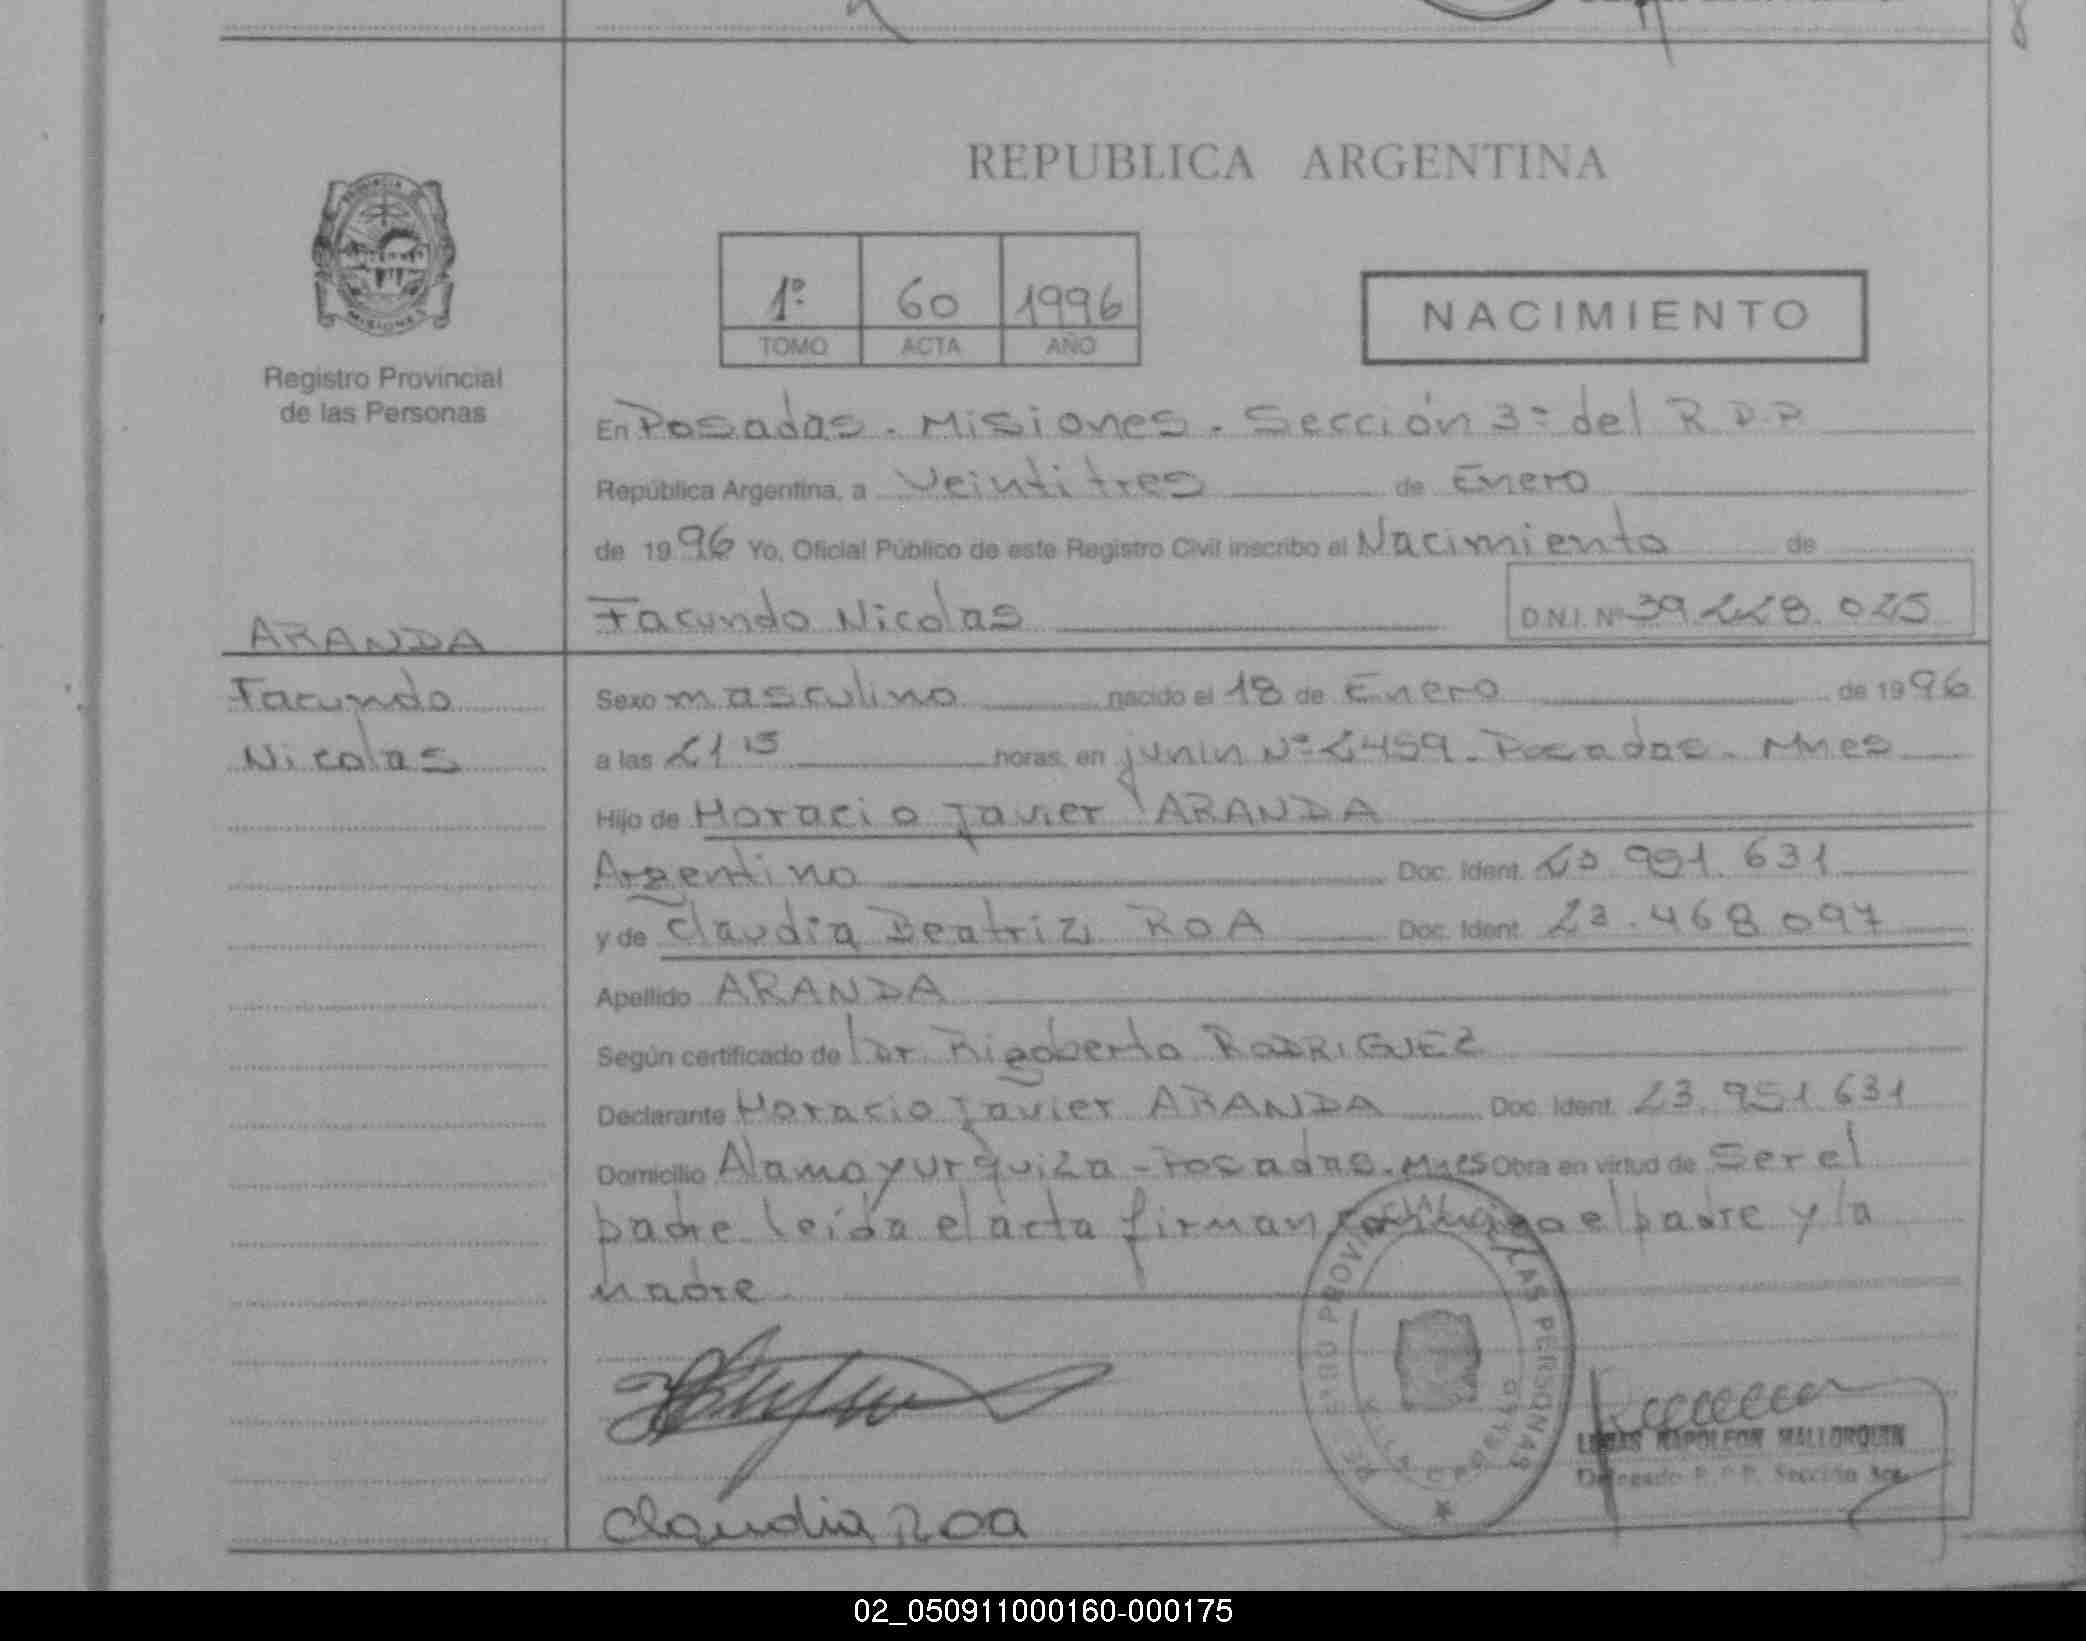 REPUBLICA ARGENTINA
1º 60 1996
TOMO ACTA AÑO
NACIMIENTO
PROVINCIA
MISIONES
Registro Provincial
de las Personas
En Posadas. Misiones. Sección 3ª del R.P.P.
República Argentina, a Veintitres de Enero
de 1996 Yo, Oficial Público de este Registro Civil inscribo el Nacimiento de
Facundo Nicolas D.N.I. Nº 39.228.025
ARANDA
Facundo
Nicolas
Sexo masculino nacido el 18 de Enero de 1996
a las 21 15 horas, en junin Nº 2459 - Posadas - Mnes
Hijo de Horacio Javier ARANDA
Argentino Doc. Ident. 23.951.631
y de Claudia Beatriz ROA Doc. Ident. 23.468.097
Apellido ARANDA
Según certificado de Dr. Rigoberto RODRIGUEZ
Declarante Horacio Javier ARANDA Doc. Ident. 23.951.631
Domicilio Alamo y urquiza - Posadas. Mnes Obra en virtud de Ser el
padre leída el acta firman conmigo el padre y la
madre
PROVINCIAL LAS PERSONAS
POSADAS
Claudia Roa
LUCAS NAPOLEON MALLORQUIN
Delegado R.P.P. Sección 3ra.
02_050911000160-000175